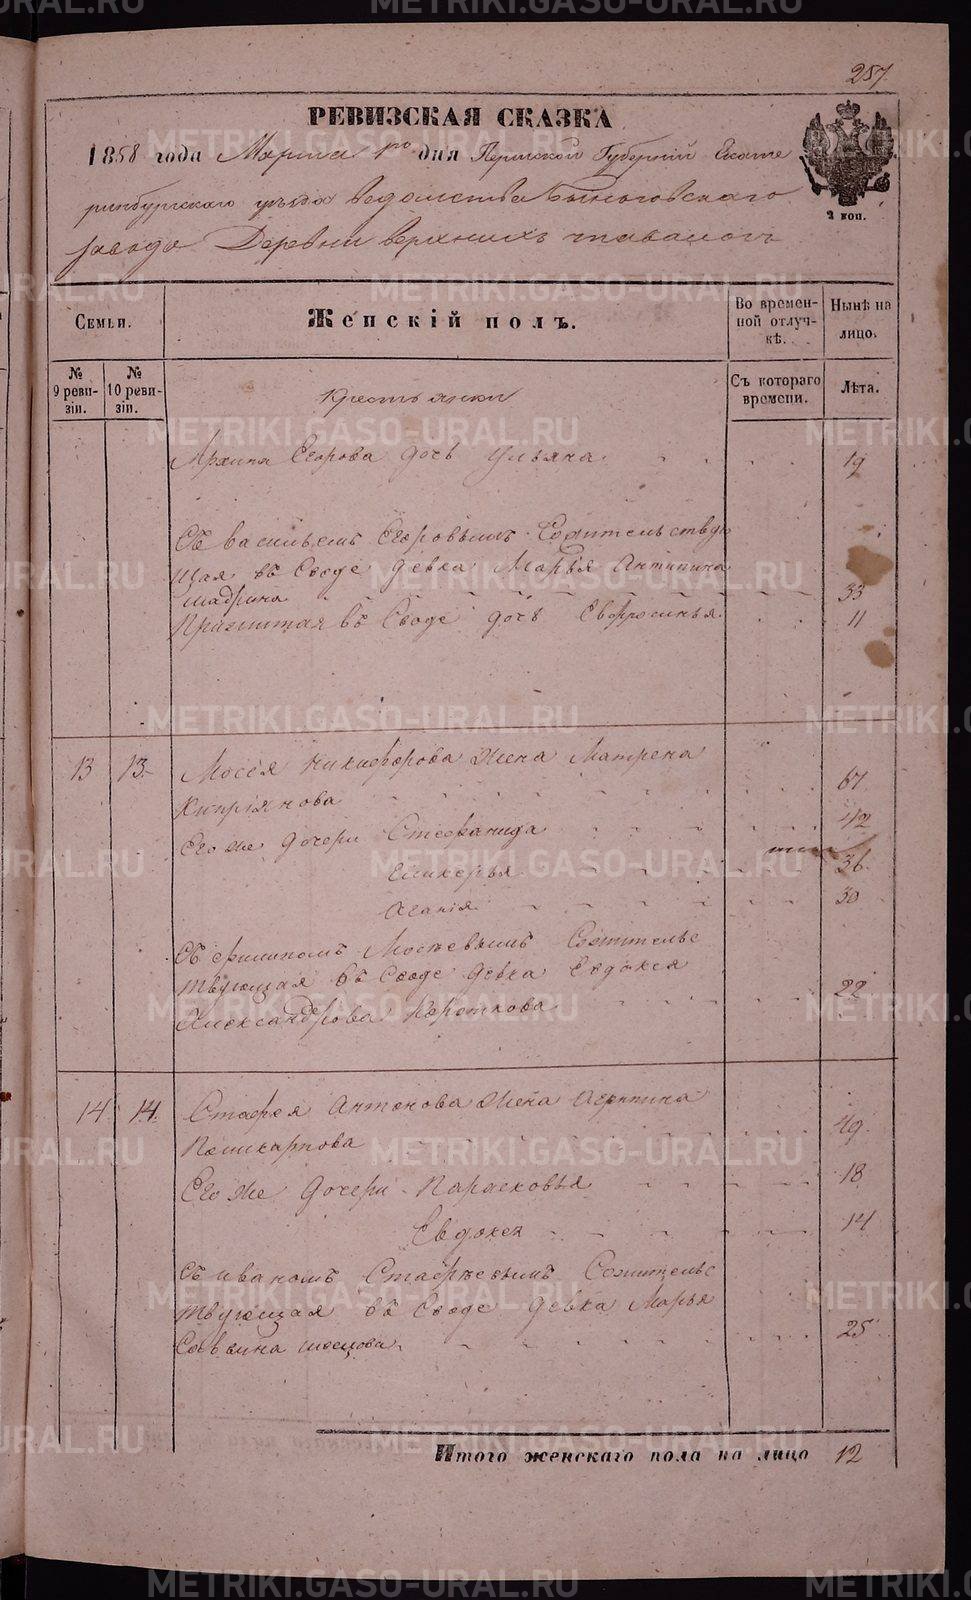 257.
РЕВИЗСКАЯ СКАЗКА
1858 года Марта 1го дня Пермской Губерніи Екате
ринбургскаго уѣзда ведомства Быньговскаго
завода Деревни верхнихъ тавологъ
2 коп.
Семьи.
Женскій полъ.
Во времен-
ной отлуч-
кѣ.
Нынѣ на
лицо.
№
9 реви-
зіи.
№
10 реви-
зіи.
Крестьянки
Съ котораго
времени.
Лѣта.
Архипа Егорова дочь Ульяна 19
Съ васильемъ Егоровымъ Сожительству
щая въ Сводѣ девка Марья Антипина
шадрина 33
Прижитая въ Сводѣ дочь Евфросинья 11
13 13. Мосея Никифорова Жена Матрена
Кипріянова 67
Его же дочери Стефанида 42
36
Аганія 30
Съ филипомъ Мосѣевымъ Сожительс
твующая въ Сводѣ девка Евдокея
Александрова Короткова 22
14 14. Стафея Антонова Жена Агрипина
Поликарпова 49.
Его же дочери Парасковья 18
Евдокея 14
Съ иваномъ Стафѣевымъ Сожительс
твующая въ Сводѣ девка Марья
Саввина 25
Итого женскаго пола на лицо 12
METRIKI.GASO-URAL.RU